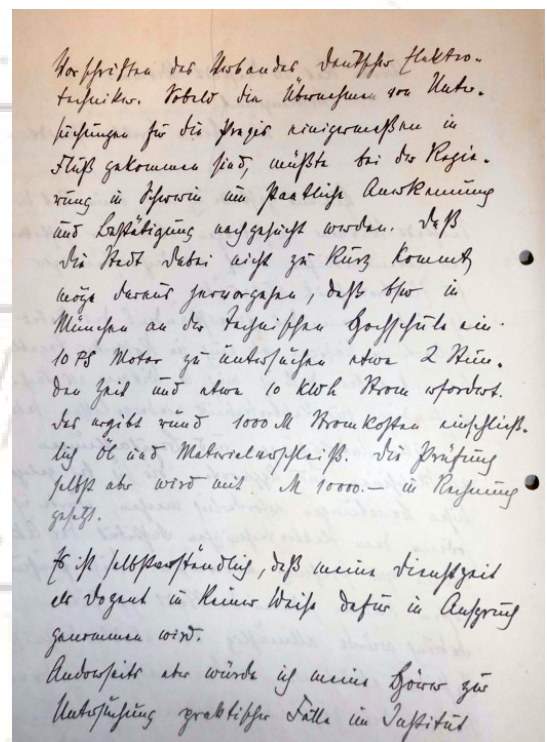 Vorschriften des Verbandes Deutscher Elektro-
techniker. Sobald die Übernahmen von Unter-
suchungen für die Praxis einigermaßen in
Fluß gekommen sind, müßte bei der Regie-
rung in Schwerin um staatliche Anerkennung
und Bestätigung nachgesucht werden. Daß
die Stadt dabei nicht zu kurz kommt,
möge daraus hervorgehen, daß bspw in
München an der Technischen Hochschule ein
10 PS Motor zu untersuchen etwa 2 Stun-
den Zeit und etwa 10 kWh Strom erfordert.
Das ergibt rund 1000 M Stromkosten einschließ-
lich Öl und Materialverschleiß. Die Prüfung
selbst aber wird mit M 10000.— in Rechnung
gesetzt.
Es ist selbstverständlich, daß meine Dienstzeit
als Dozent in keiner Weise dafür in Anspruch
genommen wird.
Anderseits aber würde ich meine Hörer zur
Untersuchung praktischer Fälle im Institut